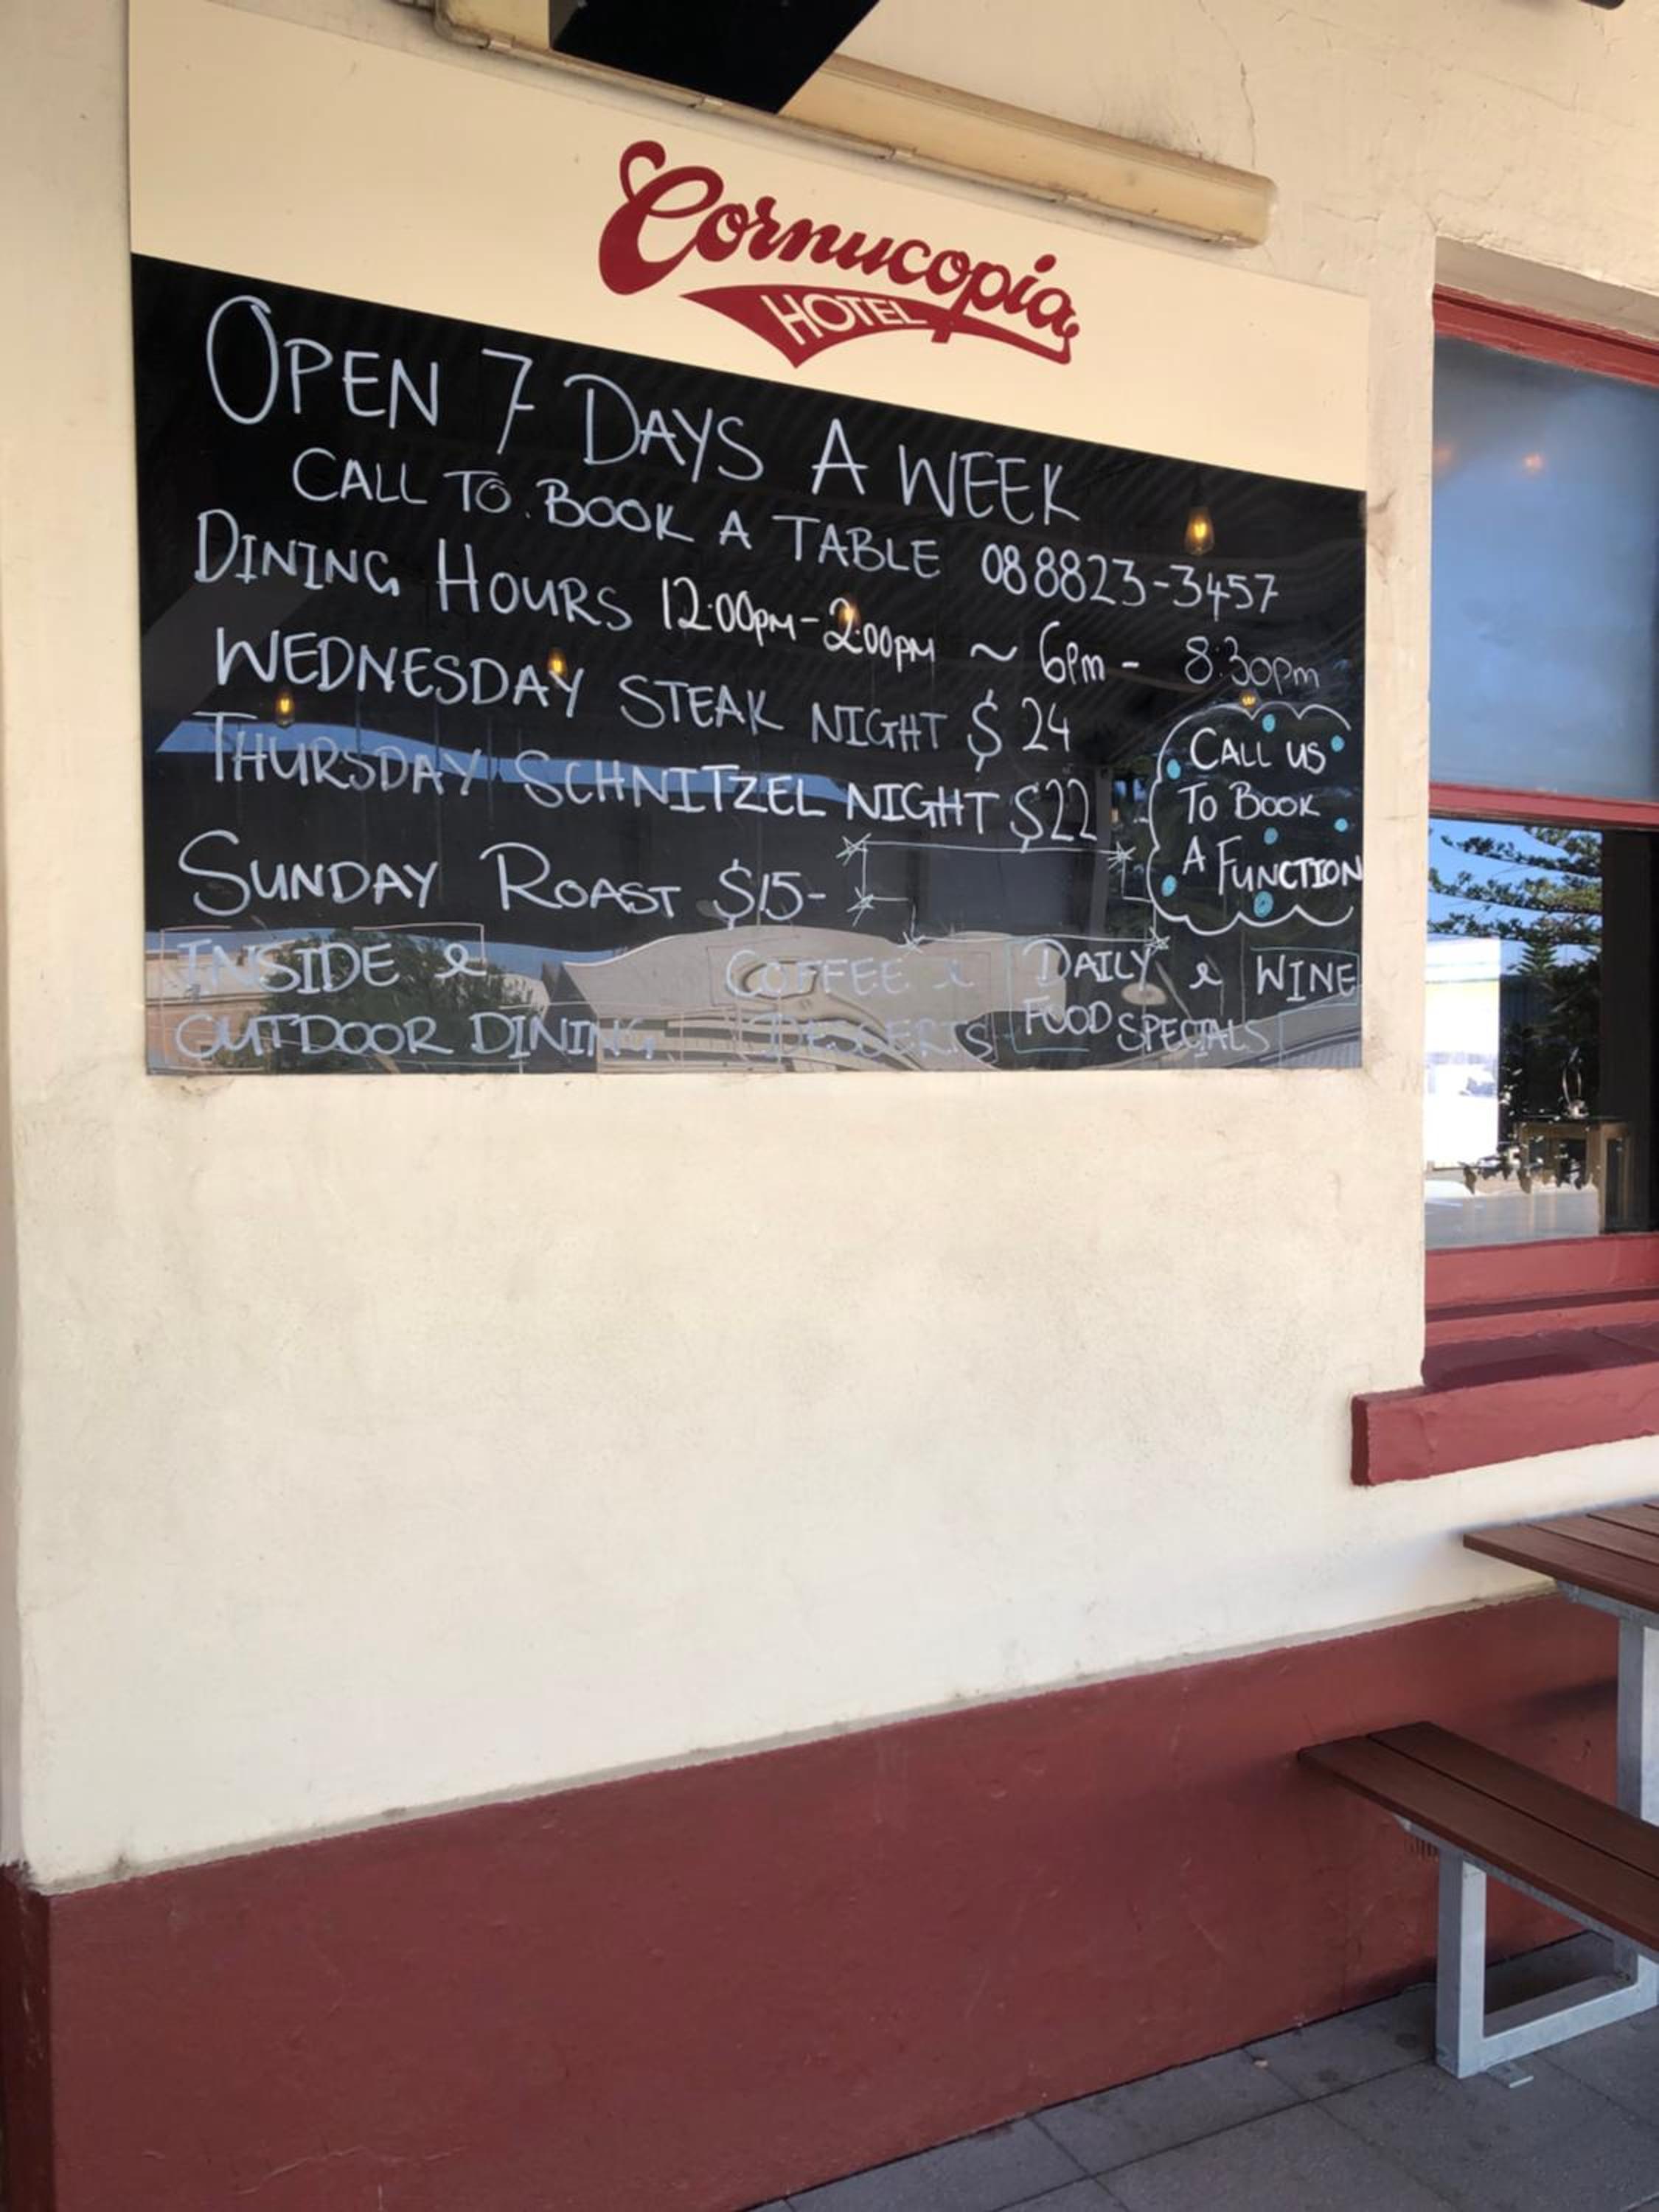 Cornucopia
HOTEL
OPEN 7 DAYS A WEEK
CALL TO BOOK A TABLE 08 8823-3457
DINING HOURS 12:00PM-2:00PM ~ 6pm - 8:30pm
WEDNESDAY STEAK NIGHT $24
THURSDAY SCHNITZEL NIGHT $22
SUNDAY ROAST $15-
CALL US
TO BOOK
A FUNCTION
INSIDE &
OUTDOOR DINING
COFFEE &
DESSERTS
DAILY & WINE
FOOD SPECIALS